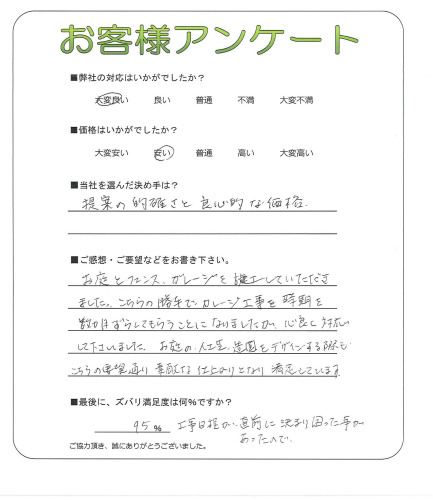 お客様アンケート
■弊社の対応はいかがでしたか？
大変良い 良い 普通 不満 大変不満
■価格はいかがでしたか？
大変安い 安い 普通 高い 大変高い
■当社を選んだ決め手は？
提案の的確さと良心的な価格.
■ご感想・ご要望などをお書き下さい。
お庭とフェンス、ガレージを施工していただき
ました。こちらの勝手でガレージ工事を時期を
数か月ずらしてもらうことになりましたが、心良く対応
して下さいました。お庭の人工芝、造園をデザインする際も
こちらの要望通り素敵な仕上がりとなり満足しています
■最後に、ズバリ満足度は何%ですか？
95% 工事日程が直前に決まり困った事が
あったので.
ご協力頂き、誠にありがとうございました。